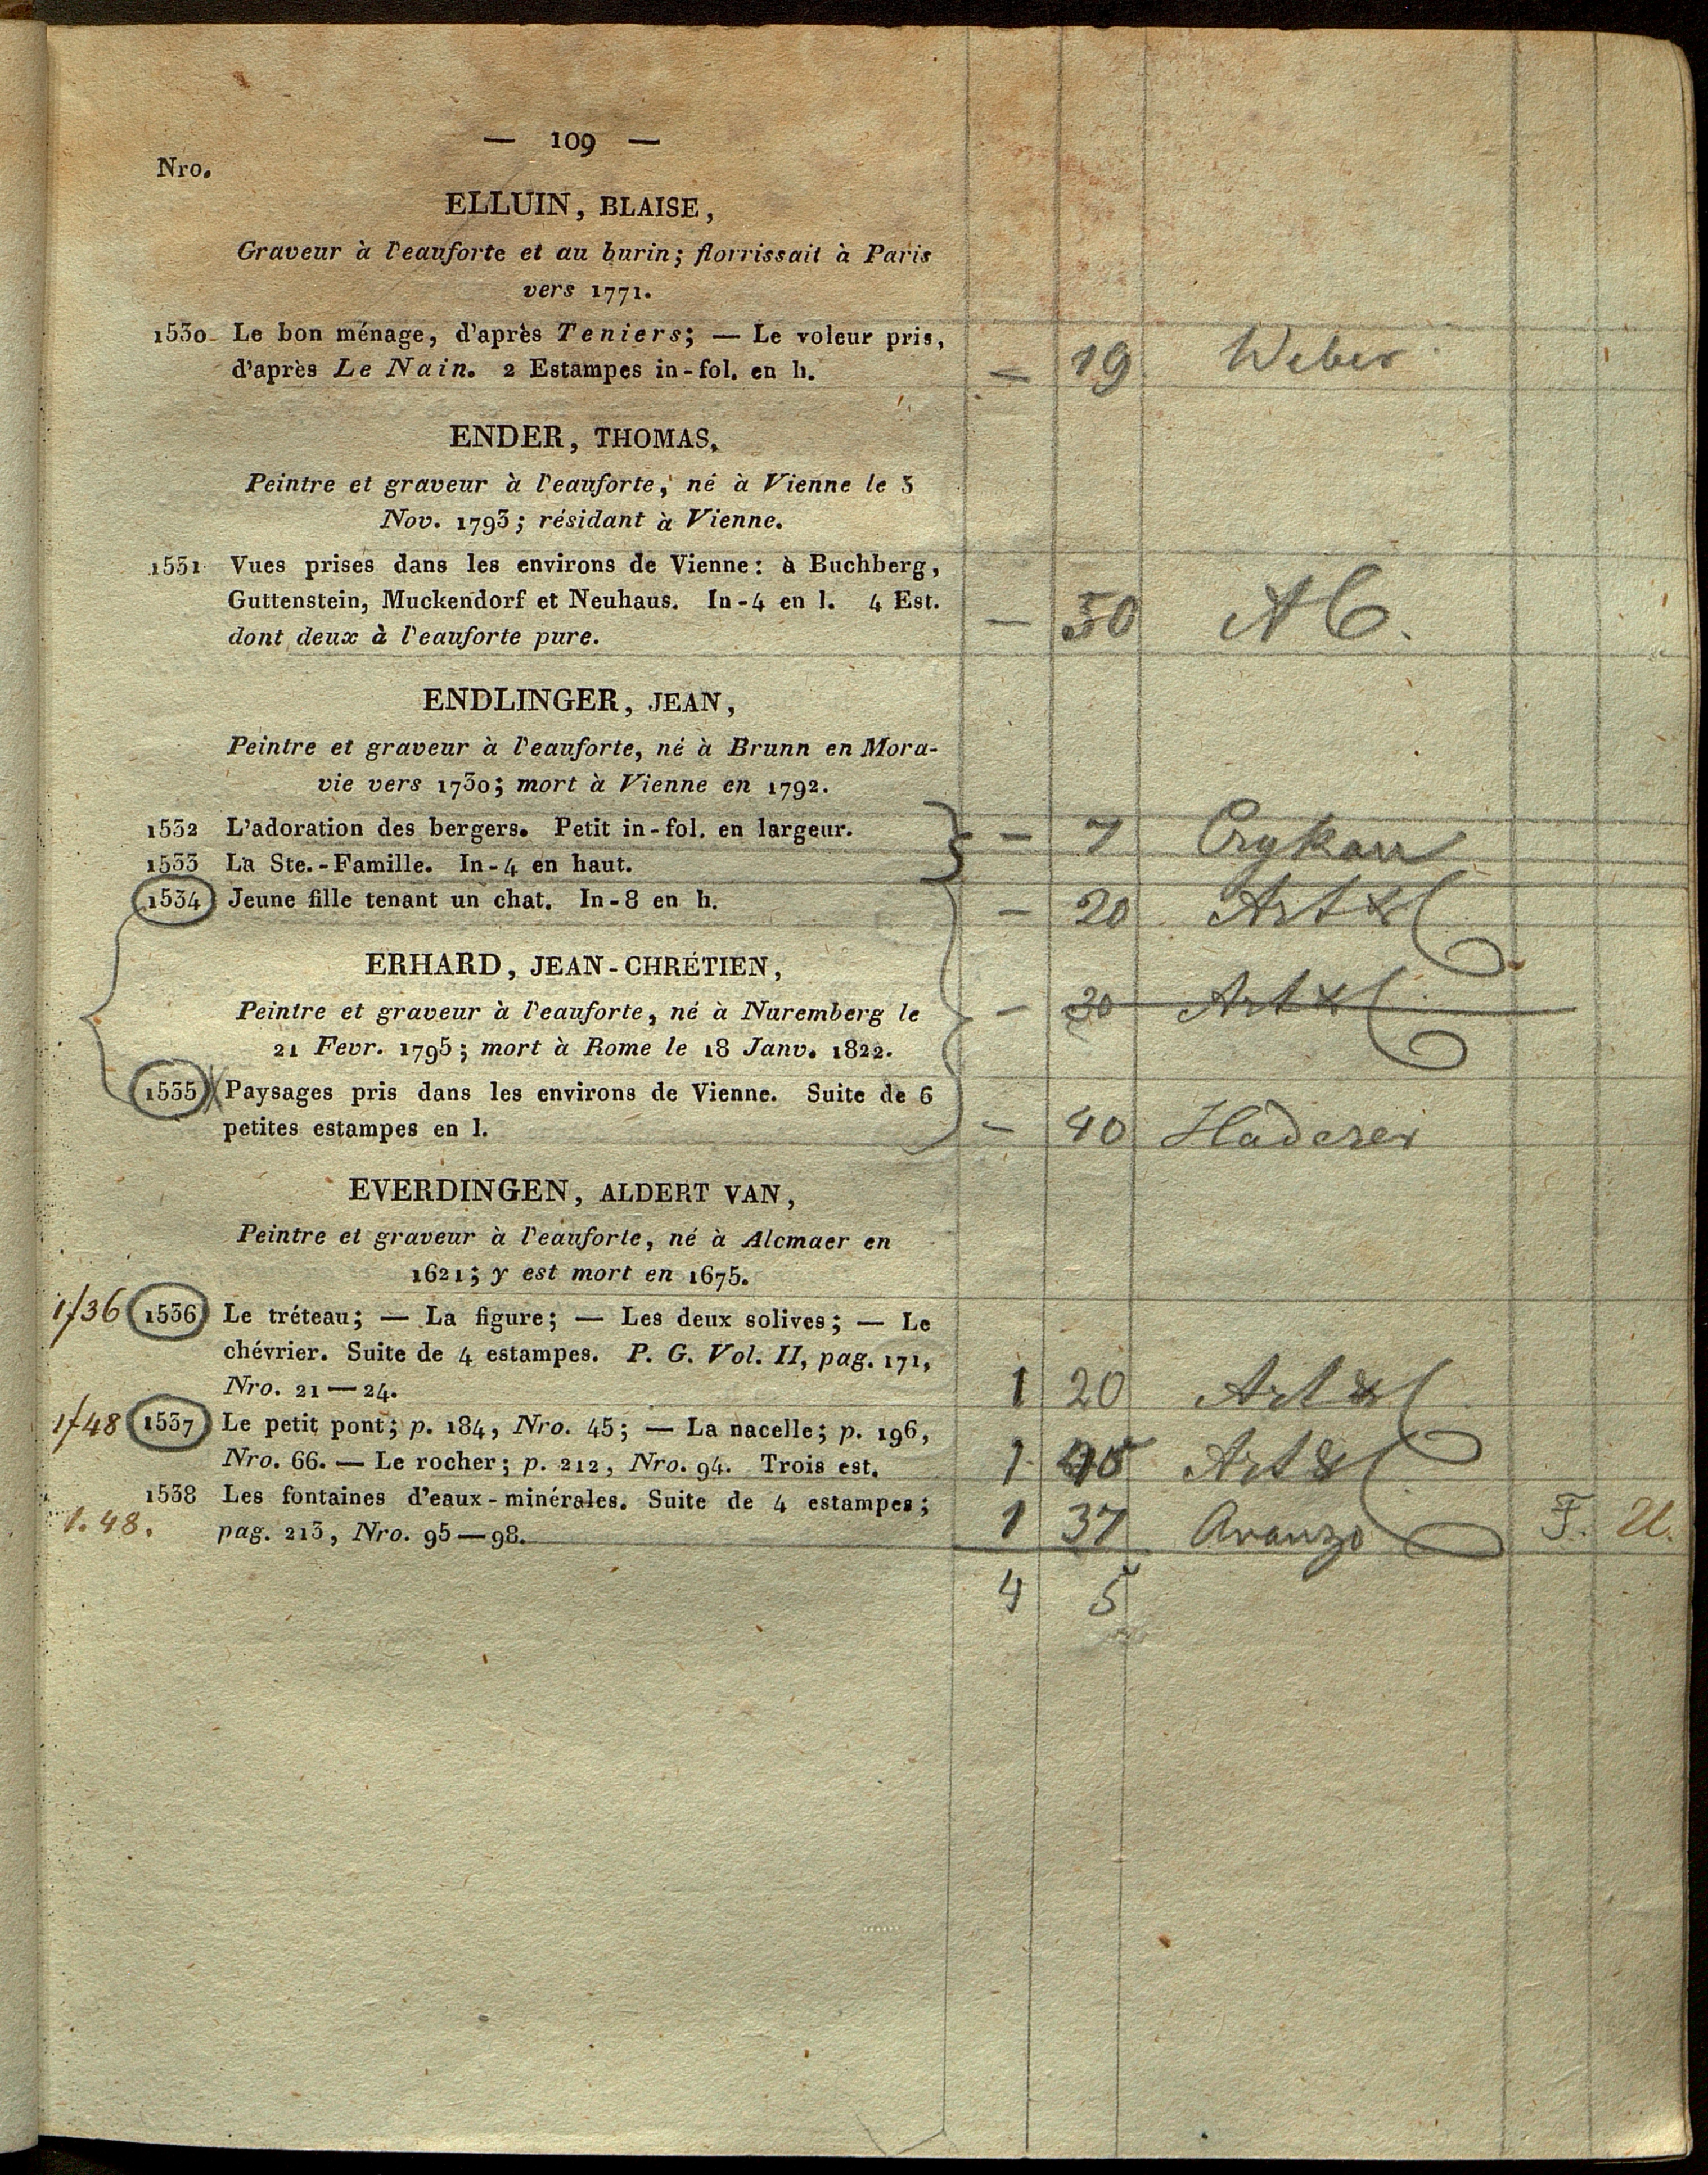 — 109 —
Nro.
ELLUIN, BLAISE,
Graveur à l'eauforte et au burin; florrissait à Paris
vers 1771.
1530 Le bon ménage, d'après Teniers; — Le voleur pris,
d'après Le Nain. 2 Estampes in-fol. en h.
— 19 Weber
ENDER, THOMAS,
Peintre et graveur à l'eauforte, né à Vienne le 3
Nov. 1793; résidant à Vienne.
1531 Vues prises dans les environs de Vienne: à Buchberg,
Guttenstein, Muckendorf et Neuhaus. In-4 en l. 4 Est.
dont deux à l'eauforte pure.
— 50
ENDLINGER, JEAN,
Peintre et graveur à l'eauforte, né à Brunn en Mora-
vie vers 1730; mort à Vienne en 1792.
1532 L'adoration des bergers. Petit in-fol. en largeur.
— 7
1533 La Ste.-Famille. In-4 en haut.
1534 Jeune fille tenant un chat. In-8 en h.
— 20 Art &
ERHARD, JEAN-CHRÉTIEN,
Peintre et graveur à l'eauforte, né à Nuremberg le
— 30 Art &
21 Fevr. 1795; mort à Rome le 18 Janv. 1822.
1535 Paysages pris dans les environs de Vienne. Suite de 6
petites estampes en l.
— 40 Haderer
EVERDINGEN, ALDERT VAN,
Peintre et graveur à l'eauforte, né à Alcmaer en
1621; y est mort en 1675.
1/36 1536 Le tréteau; — La figure; — Les deux solives; — Le
chévrier. Suite de 4 estampes. P. G. Vol. II, pag. 171,
Nro. 21—24.
1 20 Art &
1/48 1537 Le petit pont; p. 184, Nro. 45; — La nacelle; p. 196,
Nro. 66. — Le rocher; p. 212, Nro. 94. Trois est.
1 Art &
1538 Les fontaines d'eaux-minérales. Suite de 4 estampes;
1. 48. pag. 213, Nro. 95—98.
1 37 Avanzo F. U.
4 5